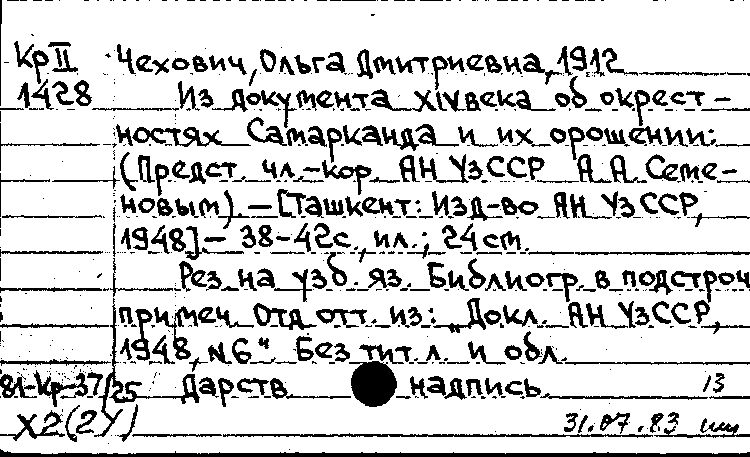 Кр II Чехович, Ольга Дмитриевна, 1912
1428 Из документа XIV века об окрест-
ностях Самарканда и их орошении:
(Предст. чл.-кор. АН УзССР А А Семе-
новым). – [Ташкент: Изд-во АН УзССР,
1948]. – 38-42 с., ил.; 24 cm.
Рез. на узб. яз. Библиогр. в подстроч
примеч. Отд. отт. из: „Докл. АН УзССР,
1948, N6“. Без тит. л. и обл.
81-Кр-37/25 Дарств. надпись. 13
X2(2У) 31.07.83